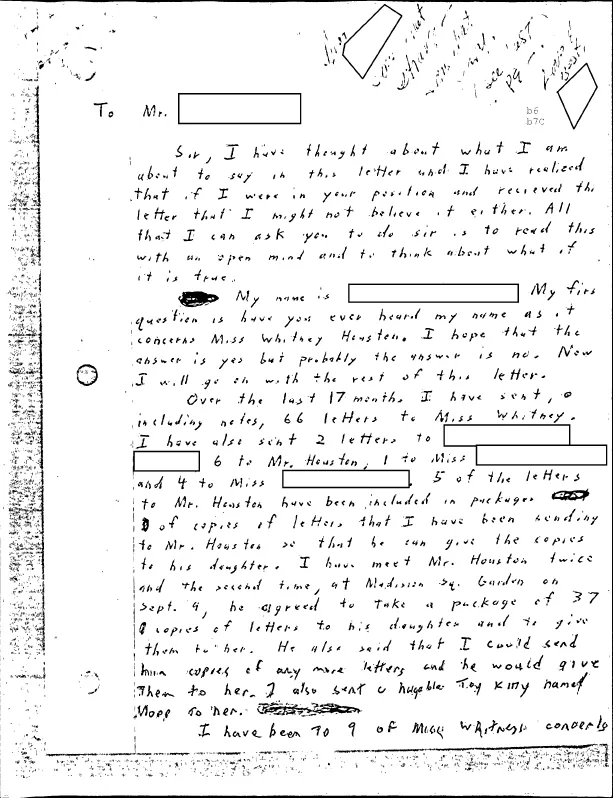 see last
pg
b6
b7C
To Mr.
Sir, I have thought about what I am
about to say in this letter and I have realized
that if I were in your position and recieved this
letter that I might not believe it either. All
that I can ask you to do sir is to read this
with an open mind and to think about what if
it is true.
My name is My firs
question is have you ever heard my name as it
concerns Miss Whitney Houston. I hope that the
answer is yes but probably the answer is no. Now
I will go on with the rest of this letter.
Over the last 17 months I have sent,
including notes, 66 letters to Miss Whitney.
I have also sent 2 letters to
6 to Mr. Houston, 1 to Miss
and 4 to Miss . 5 of the letters
to Mr. Houston have been included in packages
of copies of letters that I have been sending
to Mr. Houston so that he can give the copies
to his daughter. I have meet Mr. Houston twice
and the second time, at Madision Sq. Garden on
Sept. 9, he agreed to take a package of 37
copies of letters to his daughter and to give
them to her. He also said that I could send
him copies of any more letters and he would give
Them to her. I also sent a hugable Toy kitty named
to her.
I have been To 9 of Miss concerts